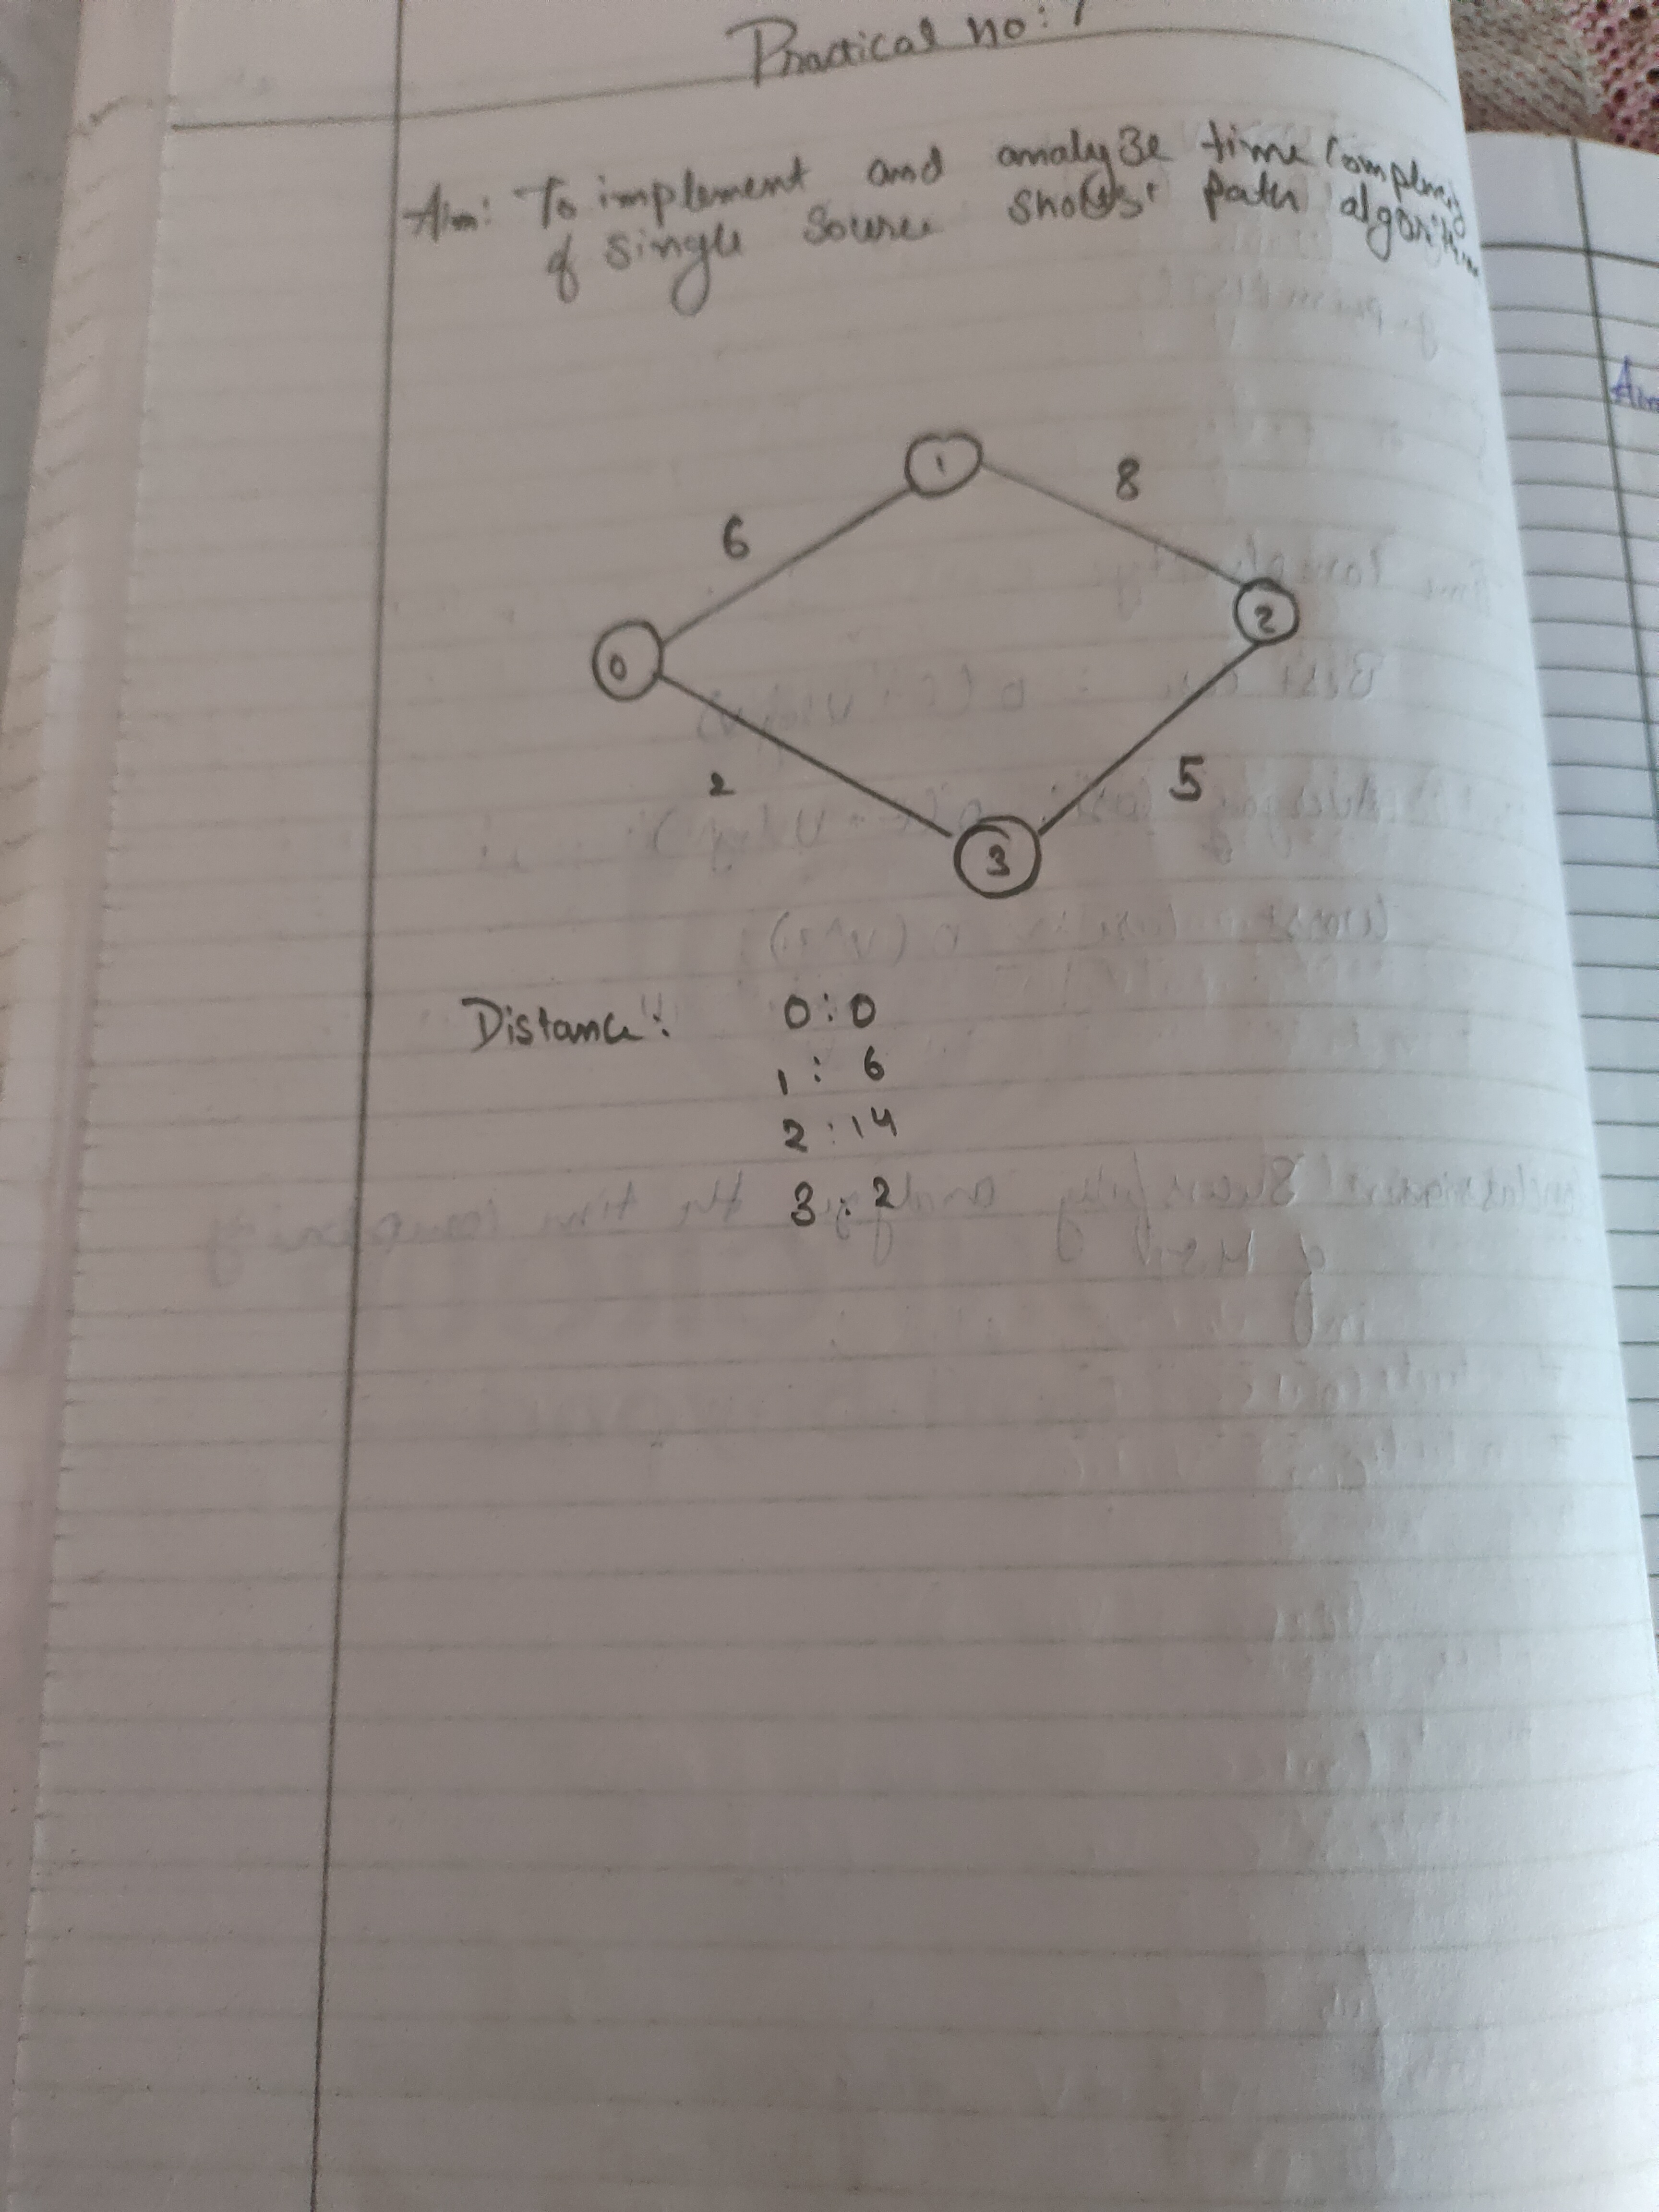 Practical no:
Aim: To implement and analyze time Complexity
of single source shotest path algorithm
1
8
6
2
0
2
5
3
Distance: 0:0
1: 6
2:14
3:2